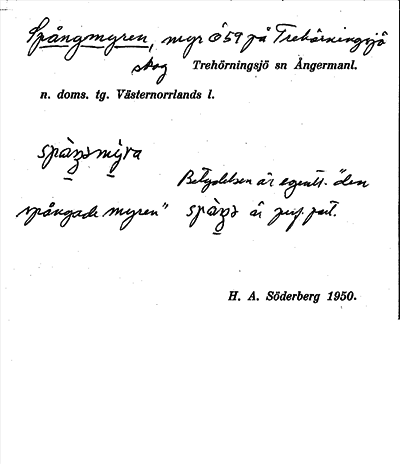 Spångmyren, myr Ö 59 på Trehörningsjö
skog Trehörningsjö sn Ångermanl.
n. doms. tg. Västernorrlands l.
Betydelsen är egentl. "den
spångade myren" är perf. part.
H. A. Söderberg 1950.